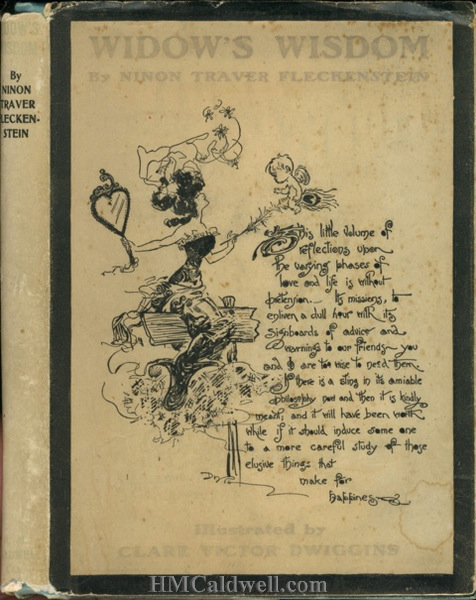 By
NINON
TRAVER
FLECKEN-
STEIN
WIDOW'S WISDOM
By NINON TRAVER FLECKENSTEIN
This little volume of
reflections upon
the varying phases of
love and life is without
pretension. Its missions, to
enliven a dull hour with its
signboards of advice and
warnings to our friends - you
and I are too wise to need them.
If there is a sting in its amiable
philosophy now and then it is kindly
meant; and it will have been worth
while if it should induce some one
to a more careful study of those
elusive things that
make for
happiness
Illustrated by
CLARE VICTOR DWIGGINS
HMCaldwell.com